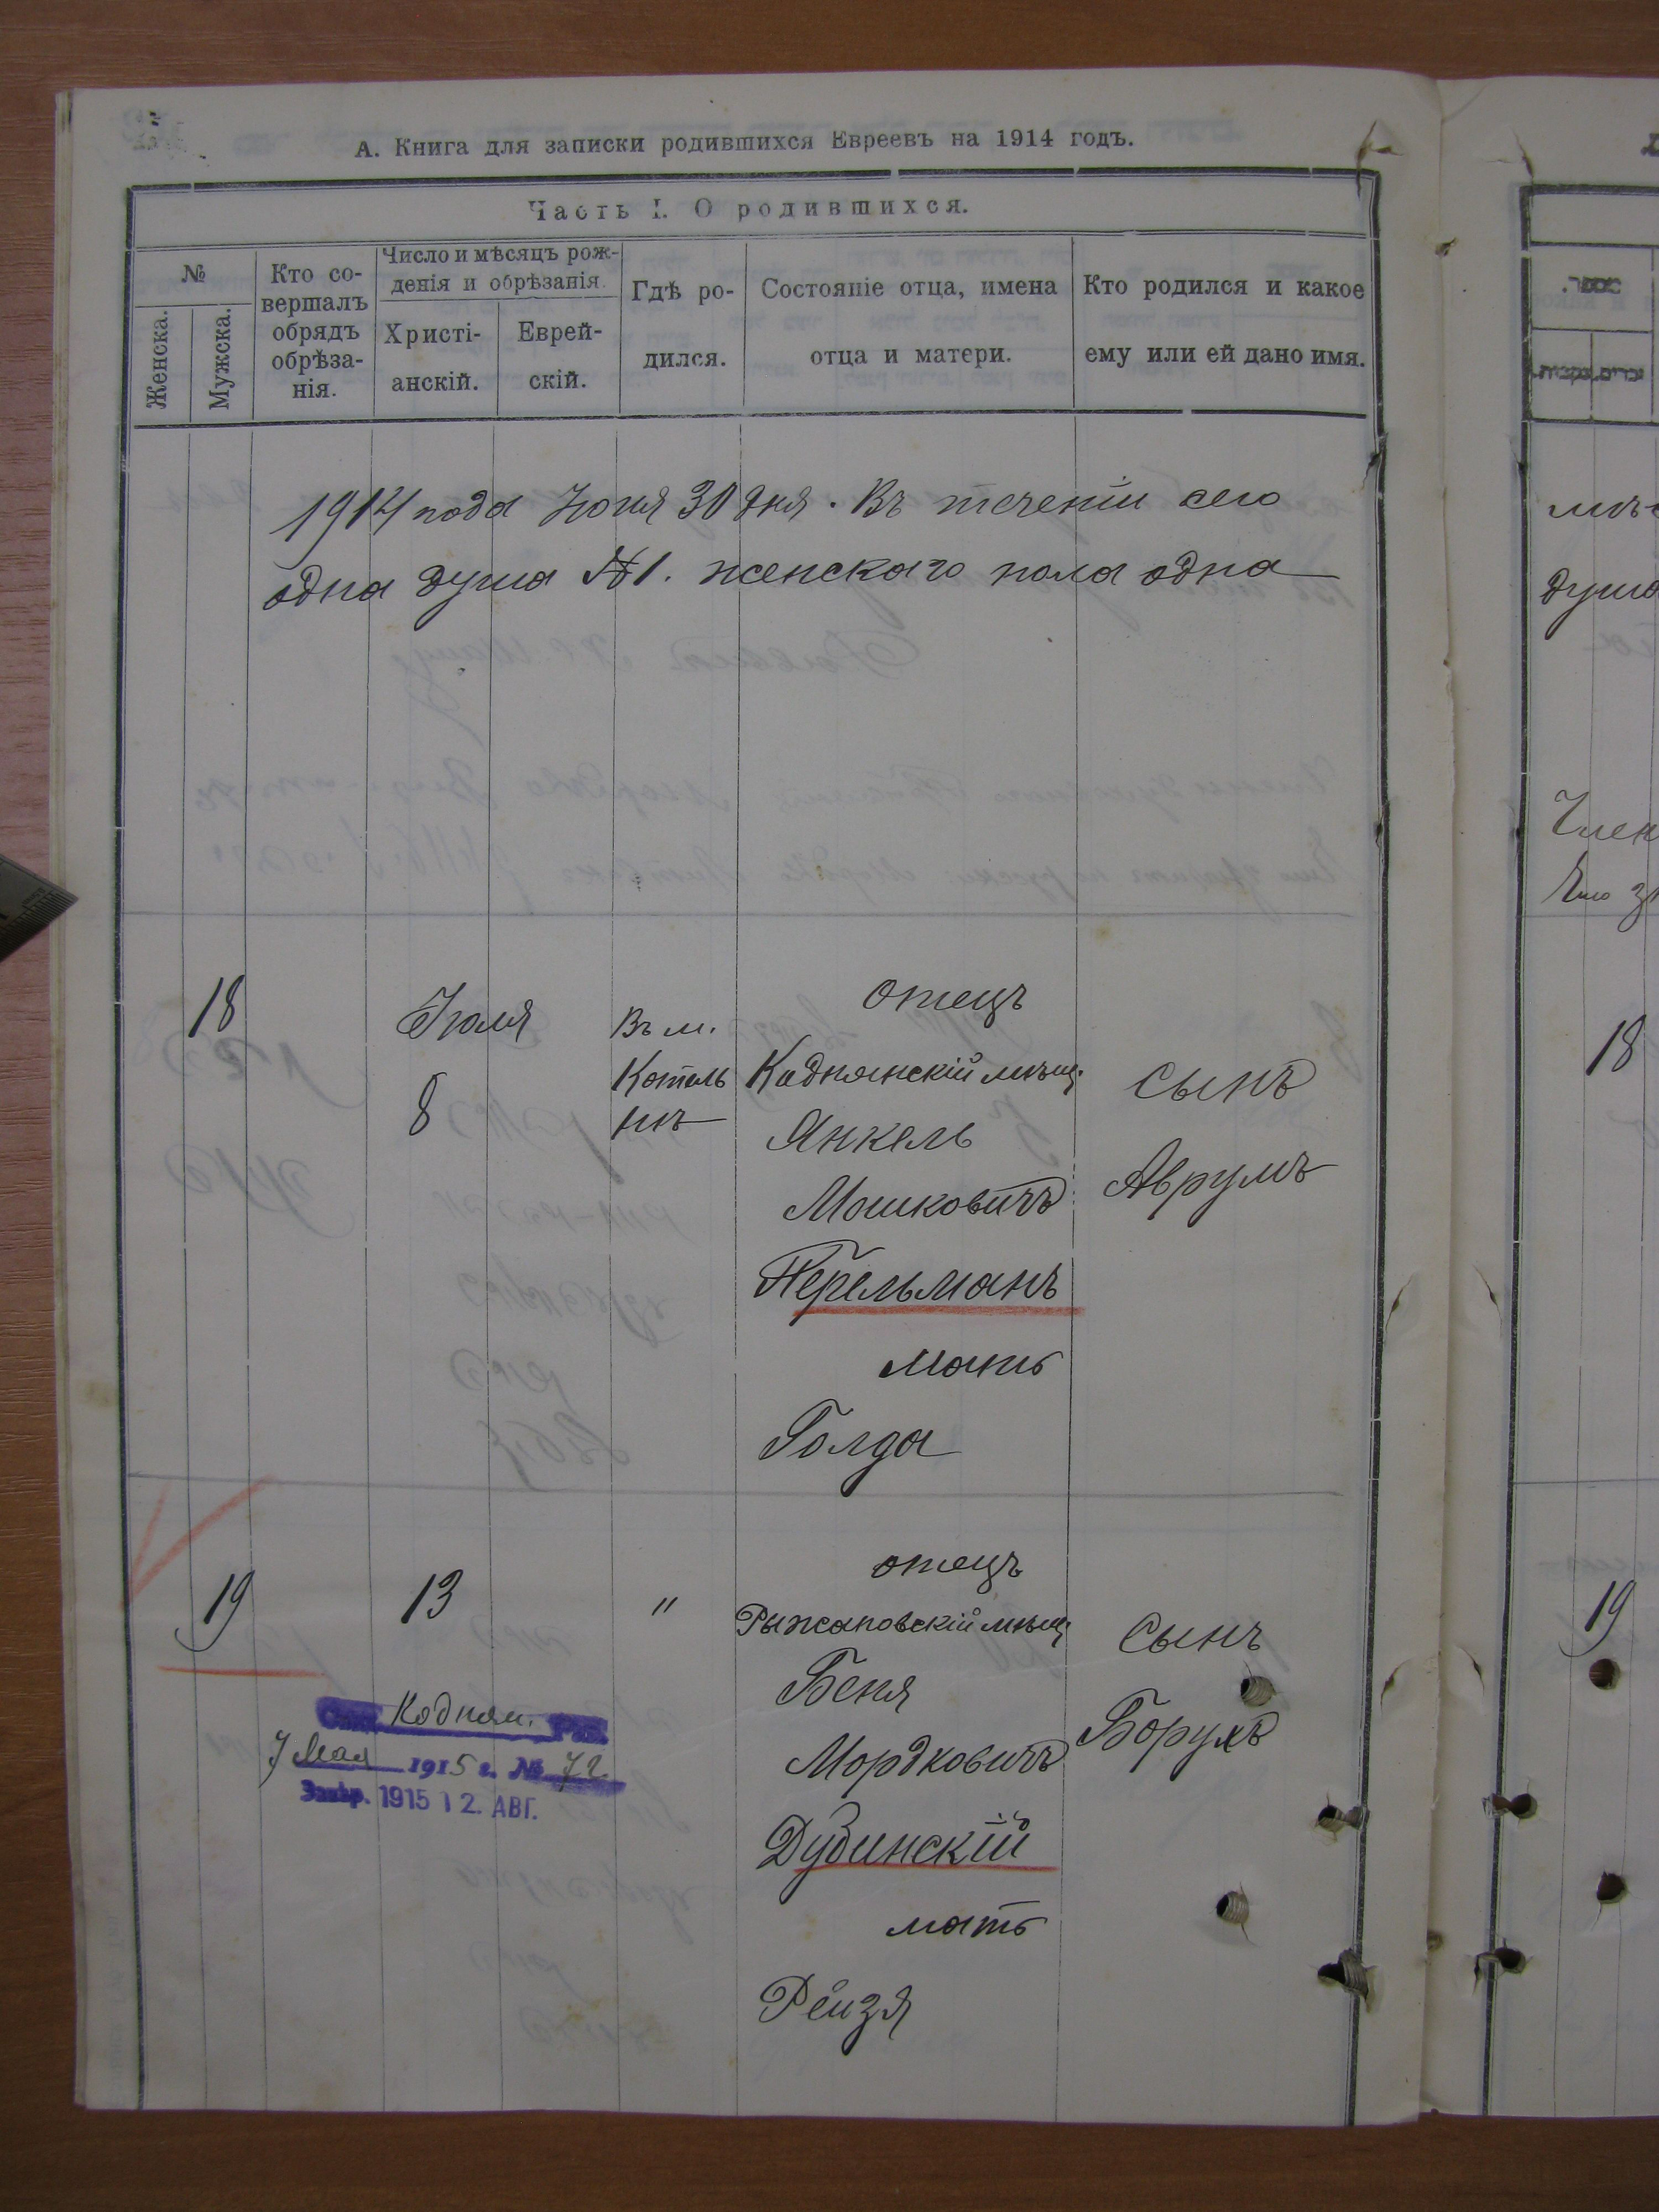 А. Книга для записки родившихся Евреевъ на 1914 годъ.
Часть I. О родившихся.
№
Женска.
Мужска.
Кто со-
вершалъ
обрядъ
обрѣза-
нія.
Число и мѣсяцъ рож-
денія и обрѣзанія.
Христі-
анскій.
Еврей-
скій.
Гдѣ ро-
дился.
Состояніе отца, имена
отца и матери.
Кто родился и какое
ему или ей дано имя.
1914 года Іюня 30 дня. Въ теченіи сего
одна душа №1. женскаго пола одна
18
Іюля
8
Въ м.
Котель
нѣ
отецъ
Каднянскій мѣщ.
Янкель
Мошковичъ
Перельманъ
мать
Голда
сынъ
Аврумъ
19
13
"
отецъ
Рыжановскій мѣщ
Беня
Мордковичъ
Дубинскій
мать
Рейзя
Сынъ
Борухъ
Кодням.
7 Мая 1915 г. № 72
Завѣр. 1915 12. АВГ.
душа
Член
18
19